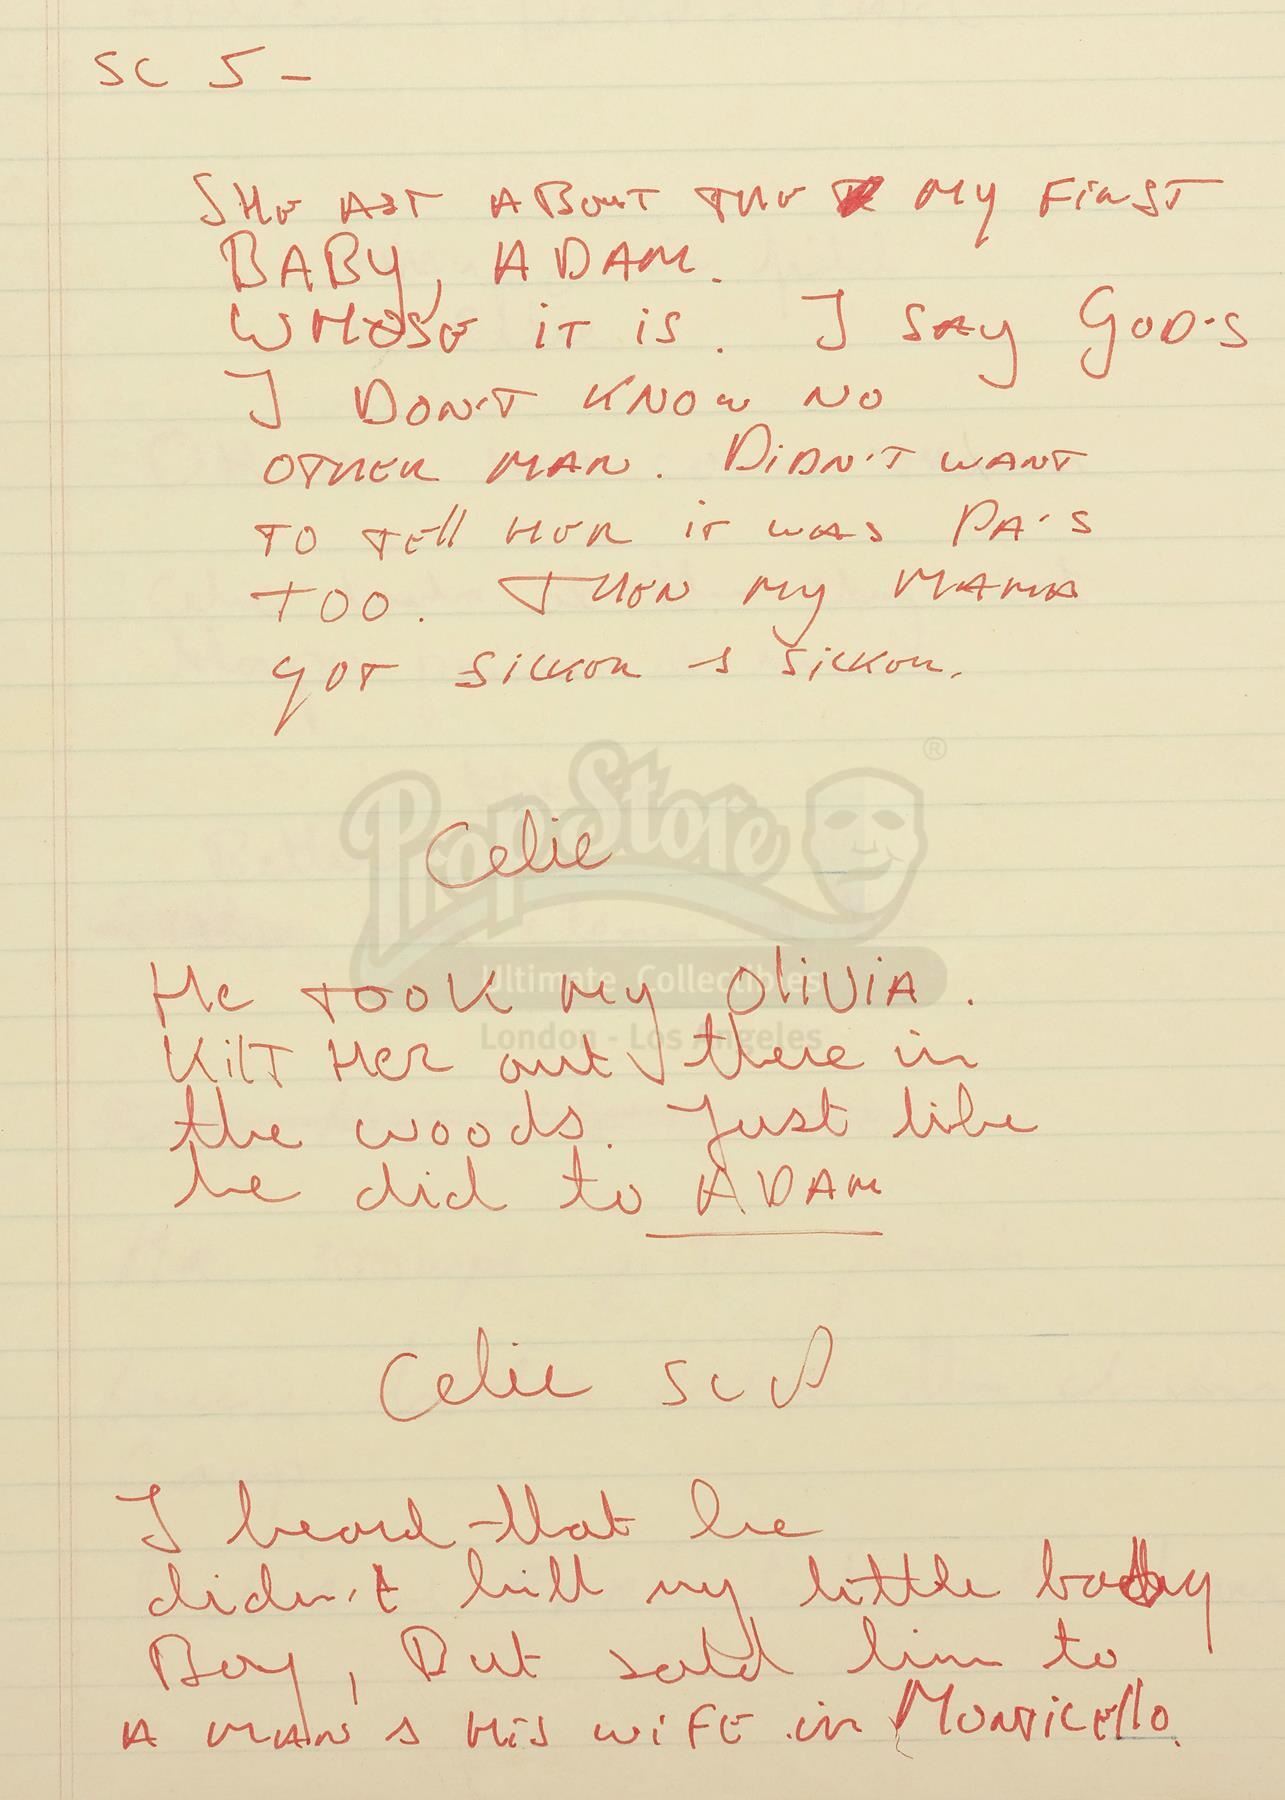 SC 5 -
SHE AST ABOUT THE MY FIRST
BABY, ADAM.
WHOSE IT IS. I SAY GOD'S
I DON'T KNOW NO
OTHER MAN. DIDN'T WANT
TO TEll HER iT WAS PA'S
TOO. THEN MY MAMA
GOT SICKER & SICKER.
PropStore ®
Celie
Ultimate Collectibles
London - Los Angeles
He TOOK MY OliViA.
KilT HER out there in
the woods. Just like
he did to ADAM
Celie SC
I heard that he
didn't kill my little baby
Boy, But sold him to
A MAN & HiS WiFE in MONTICEllo.